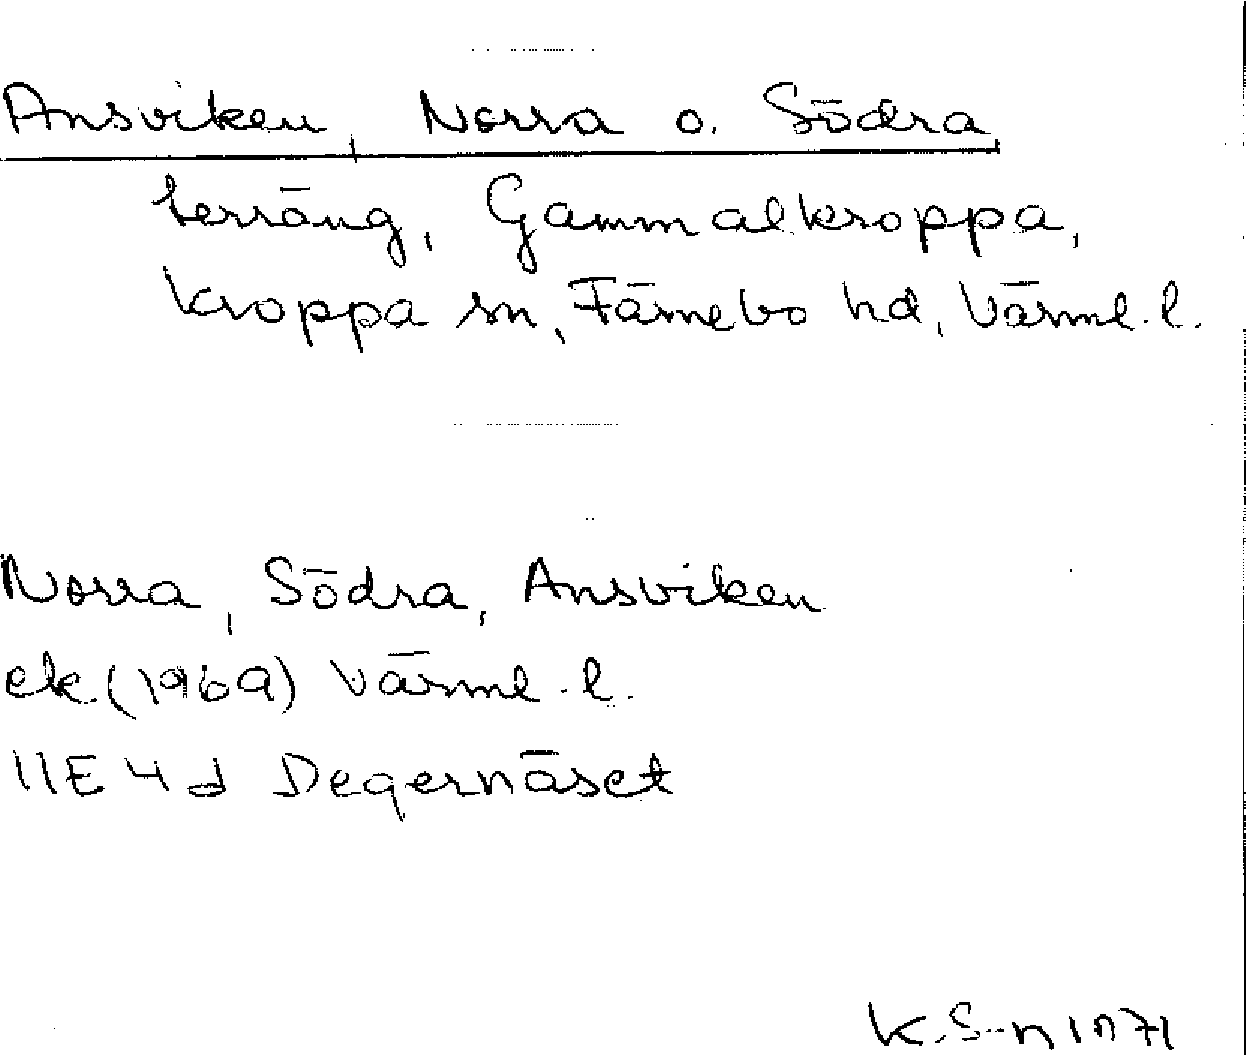 Ansviken, Norra o. Södra
terräng, Gammalkroppa,
Kroppa sn, Färnebo hd, Värml. l.
Norra, Södra, Ansviken
ek. (1969) Värml. l.
11E 4d Degernäset
K. S-n 1971